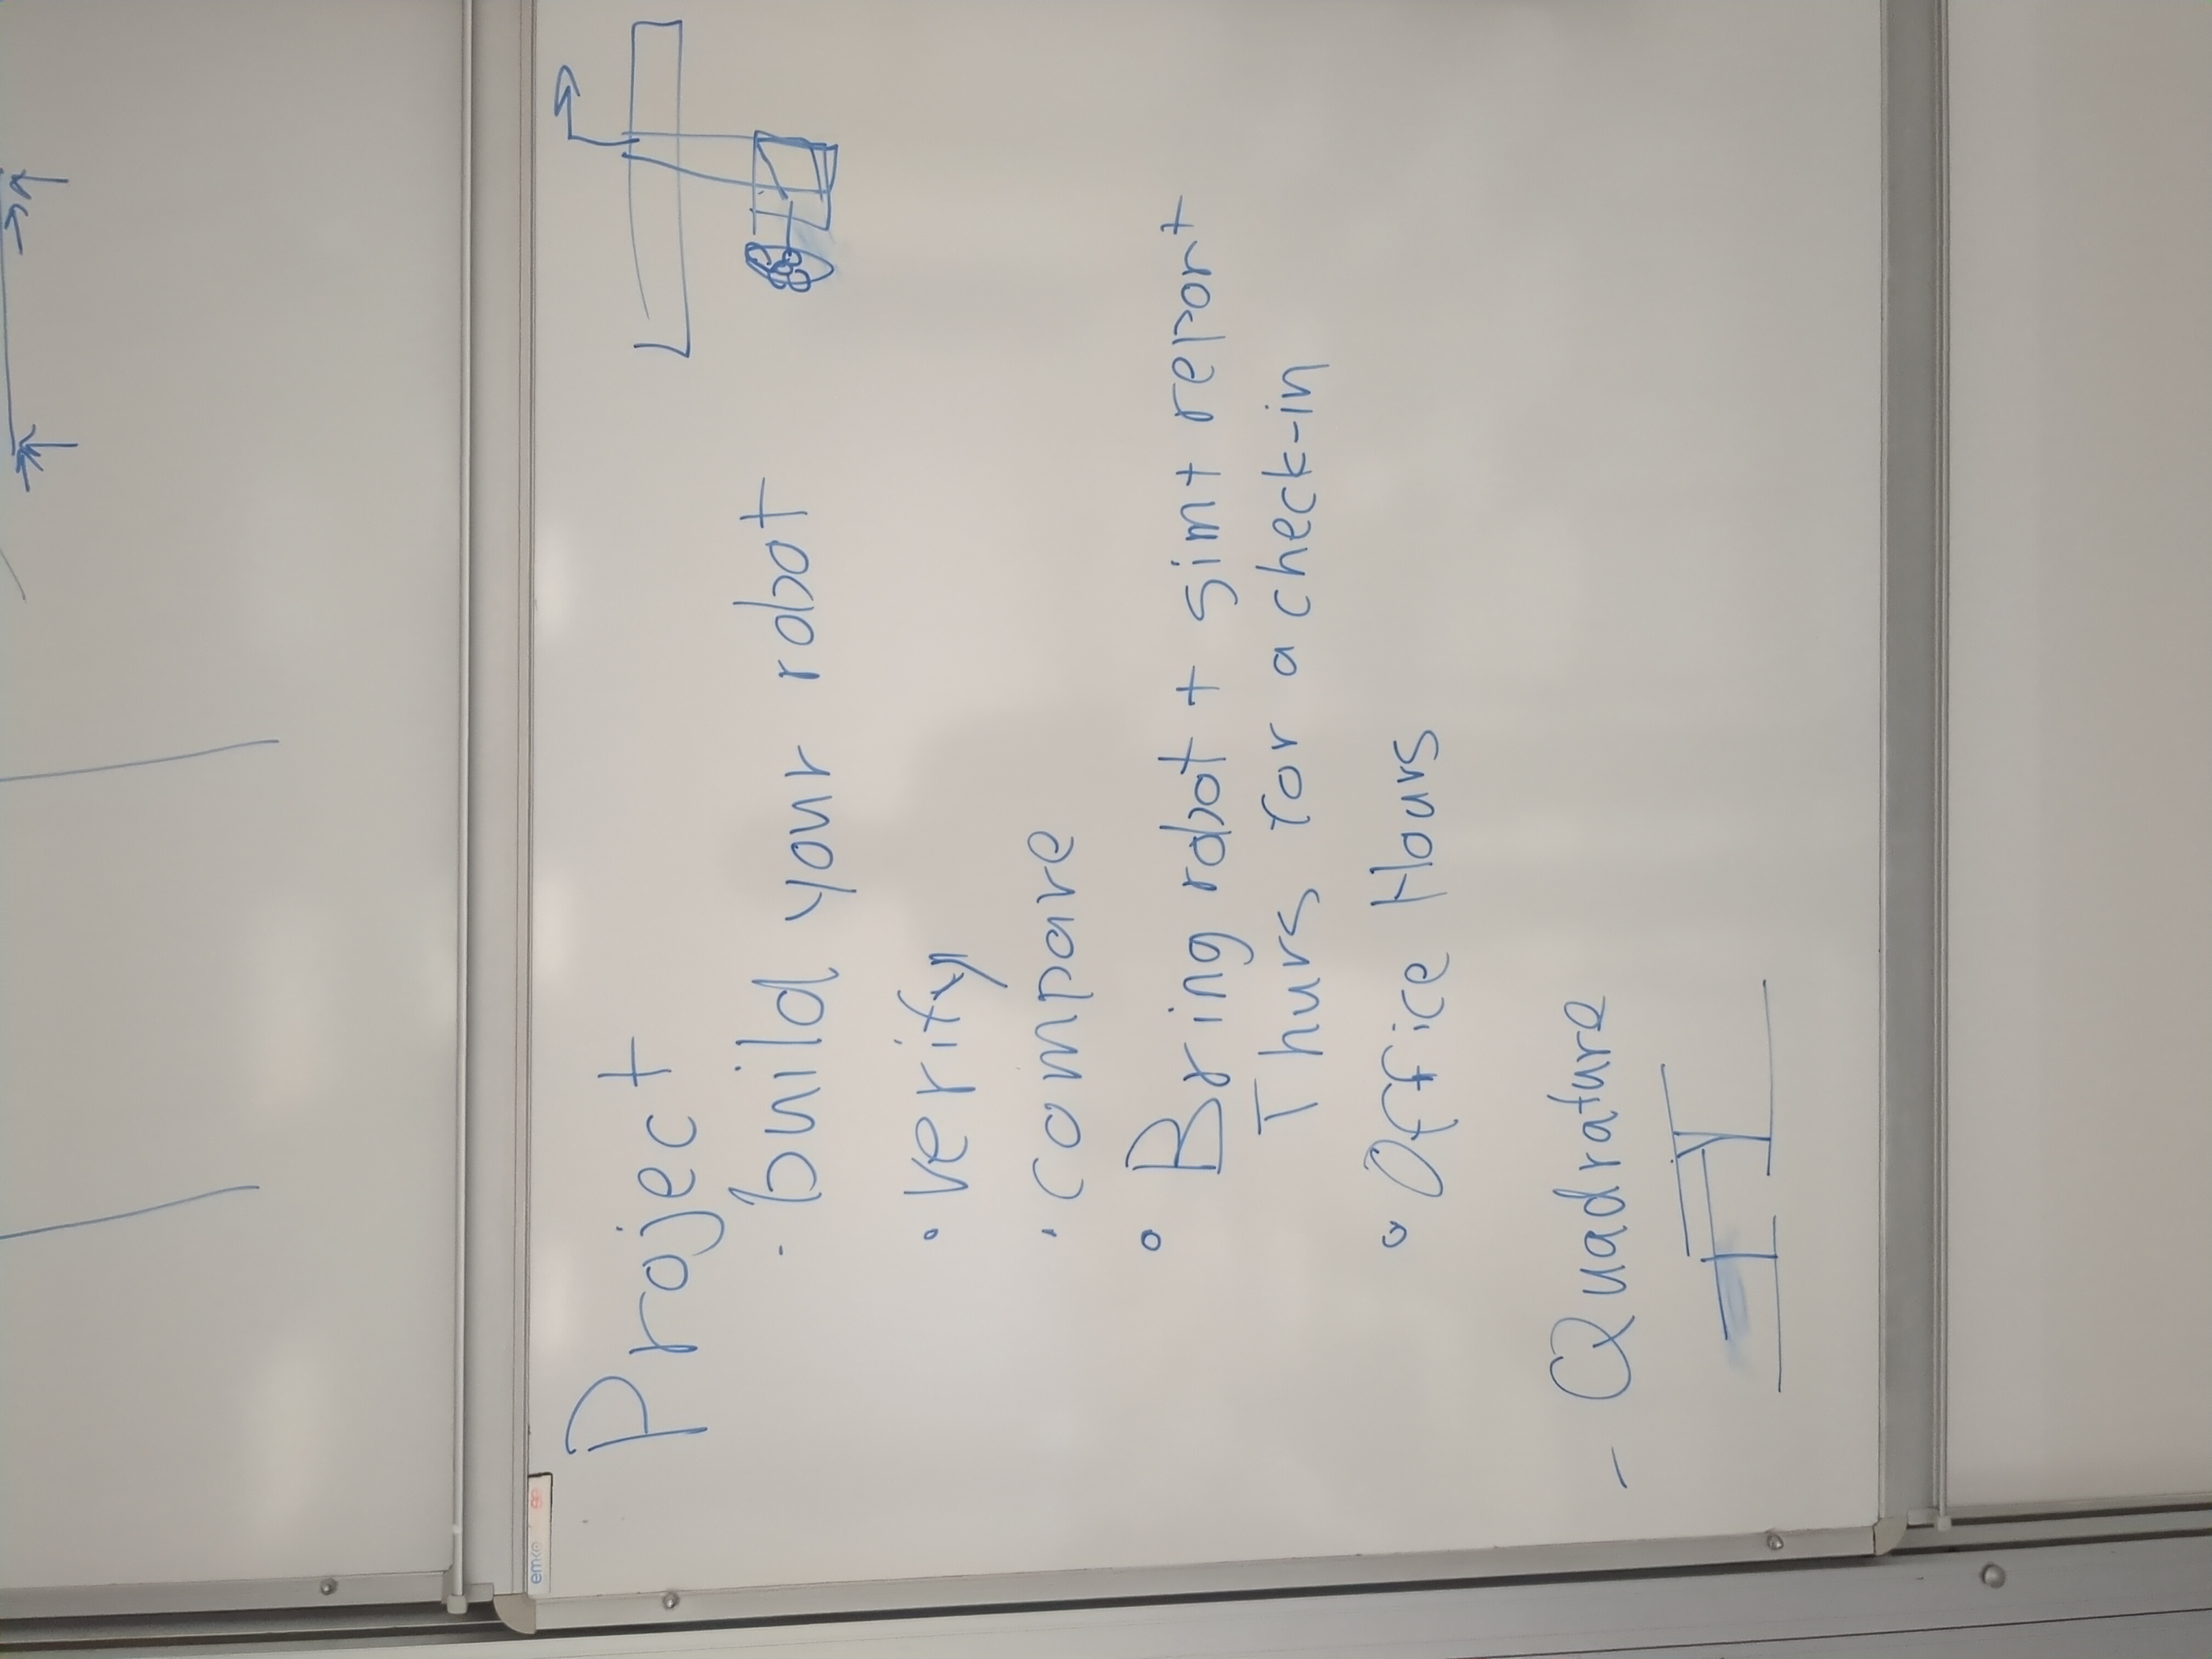 emko
Project
- build your robot
• verify
• compare
• Bring robot + sim + report
Thurs for a check-in
• Office Hours
- Quadrature